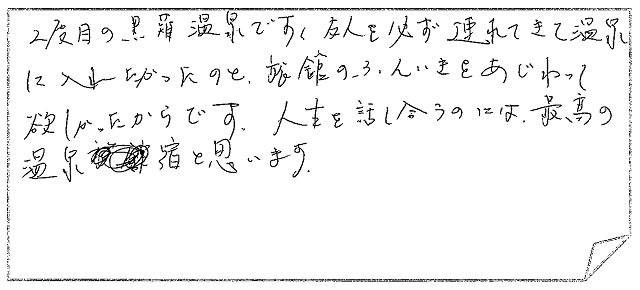 2度目の黒羅温泉です、友人を必ず連れてきて温泉
に入れたかったのと、旅館のふんいきをあじわって
欲しかったからです。人生を話し合うのには、最高の
温泉宿と思います。